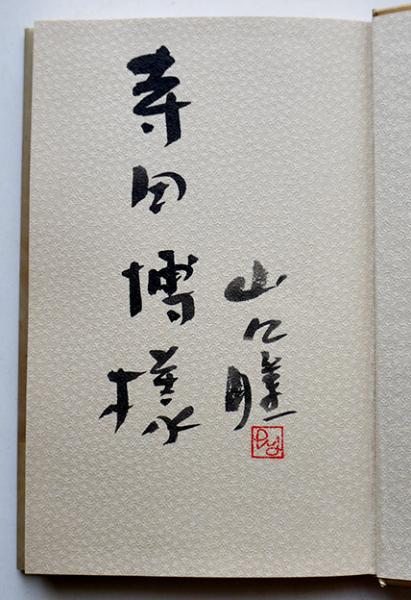 寺田博様
山口瞳